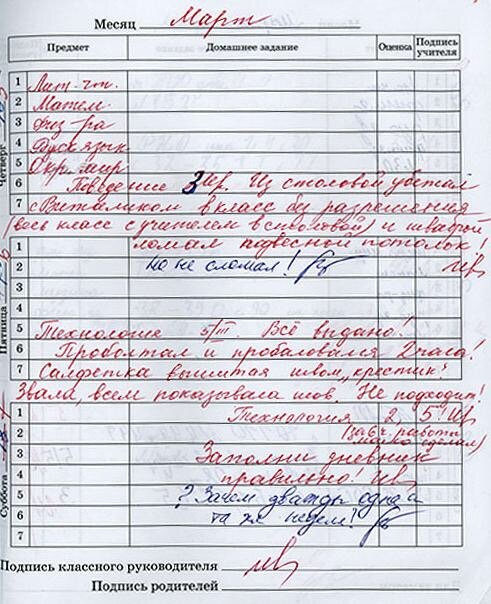 Месяц Март
Предмет Домашнее задание Оценка Подпись учителя
Четверг
1 Лит. чт.
2 Матем.
3 Физ-ра
4 Русск язык
5 Окр. мир.
6 Поведение 3 Из столовой убежал
7 с Виталиком в класс без разрешения
(весь класс с учителем в столовой) и шваброй
ломал подвесной потолок!
Пятница
1
2 но не сломал!
3
4
5 Технология 5/III. Всё выдано!
6 Проболтал и пробаловался 2 часа!
7 Салфетка вышитая швом „крестик".
Звала, всем показывала шов. Не подходит!
Суббота
1 Технология 2, 5!
2 (за 6 ч. работы мало сделал)
3 Заполни дневник
4 правильно!
5 ? Зачем дважды одна и
6 та же неделя!
7
Подпись классного руководителя
Подпись родителей